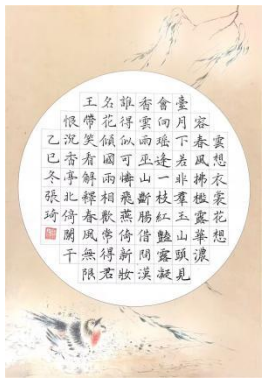 雲想衣裳花想
容春風拂檻露華濃
臺月下若非羣玉山頭見
會向瑶逢一枝紅豔露凝
香雲雨巫山斷腸借問漢
誰得似可憐飛燕倚新妝
名花傾國兩相歡常得君
王帶笑看解釋春風無限
恨沉香亭北倚闌干
乙巳冬張琦